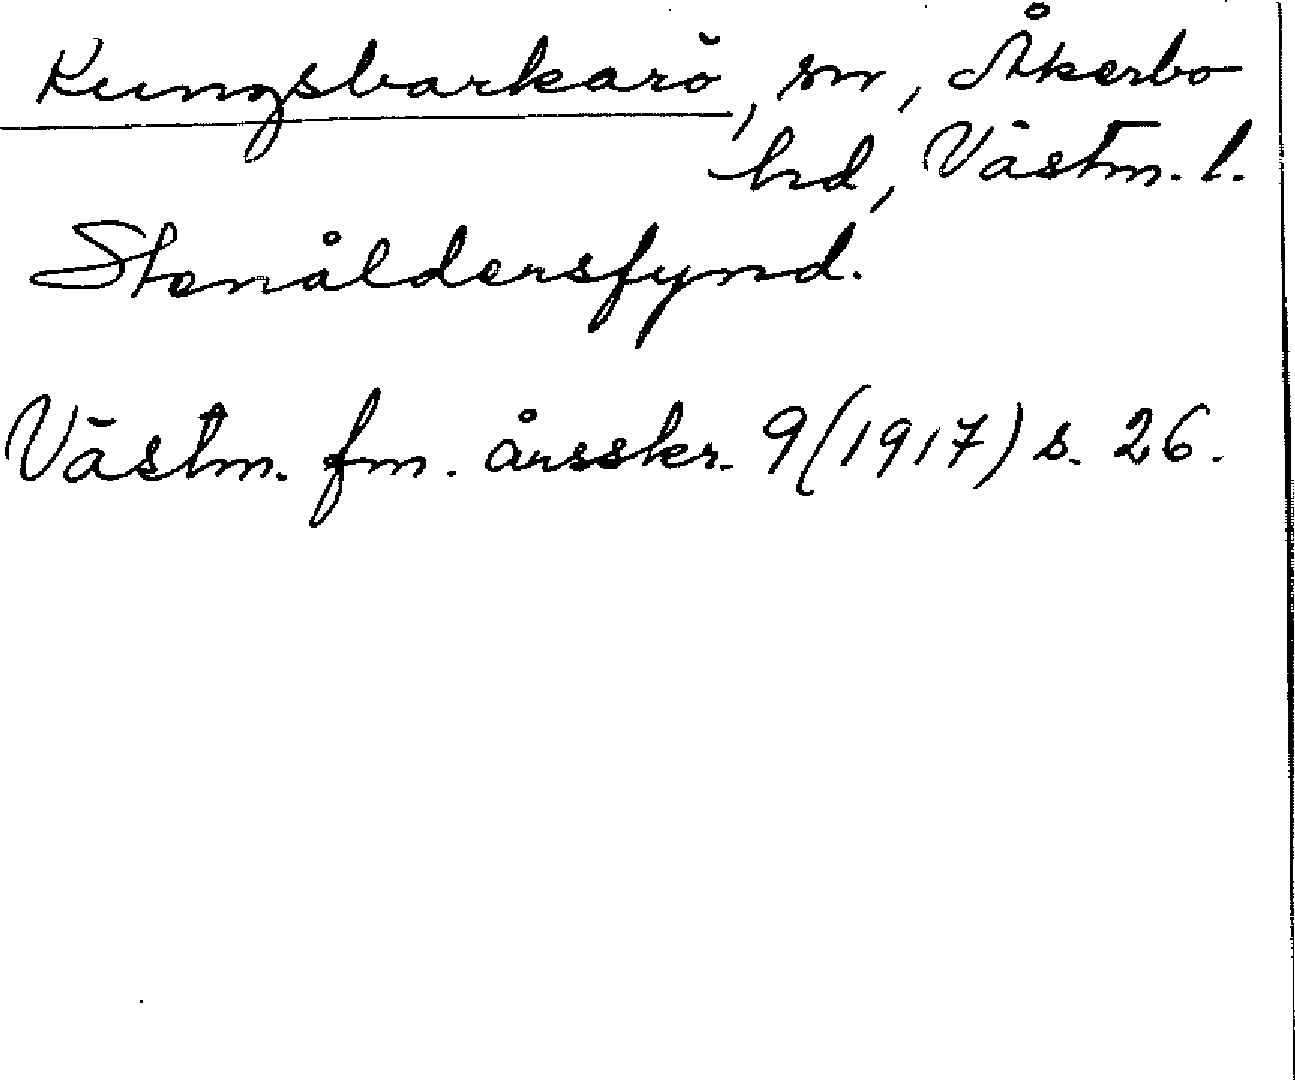 Kungsbarkarö, sn, Åkerbo
hd, Västm. l.
Stenåldersfynd.
Västm. fm. årsskr. 9 (1917) s. 26.